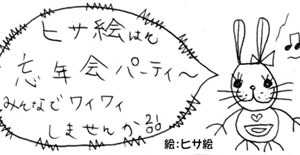 ヒサ絵はそ
忘年会パーティ〜
みんなでワイワイ
しませんか!!
絵:ヒサ絵